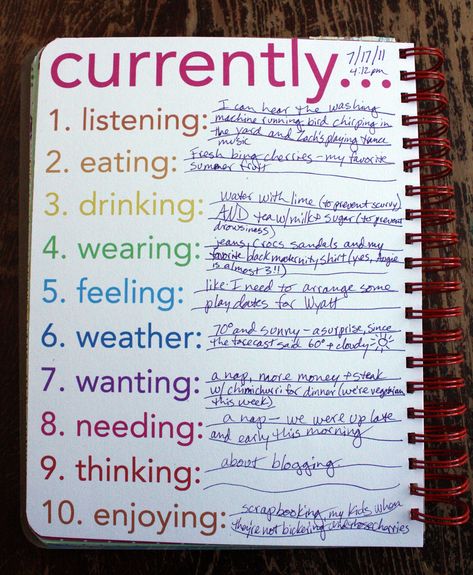 currently...
7/17/11
4:12pm
1. listening: I can hear the washing
machine running, bird chirping in
the yard and Zach's playing trance
music
2. eating: Fresh bing cherries - my favorite
summer fruit
3. drinking: Water with lime (to prevent scurvy)
AND tea w/milk + sugar (to prevent
drowsiness)
4. wearing: jeans, crocs sandals and my
favorite black maternity shirt (yes, Angie
is almost 3!!)
5. feeling: like I need to arrange some
play dates for Wyatt
6. weather: 70° and sunny - a surprise, since
the forecast said 60° + cloudy
7. wanting: a nap, more money + steak
w/ chimichurri for dinner (we're vegetarian
this week)
8. needing: a nap - we were up late
and early this morning
9. thinking: about blogging.
10. enjoying: scrapbooking, my kids when
they're not bickering those cherries